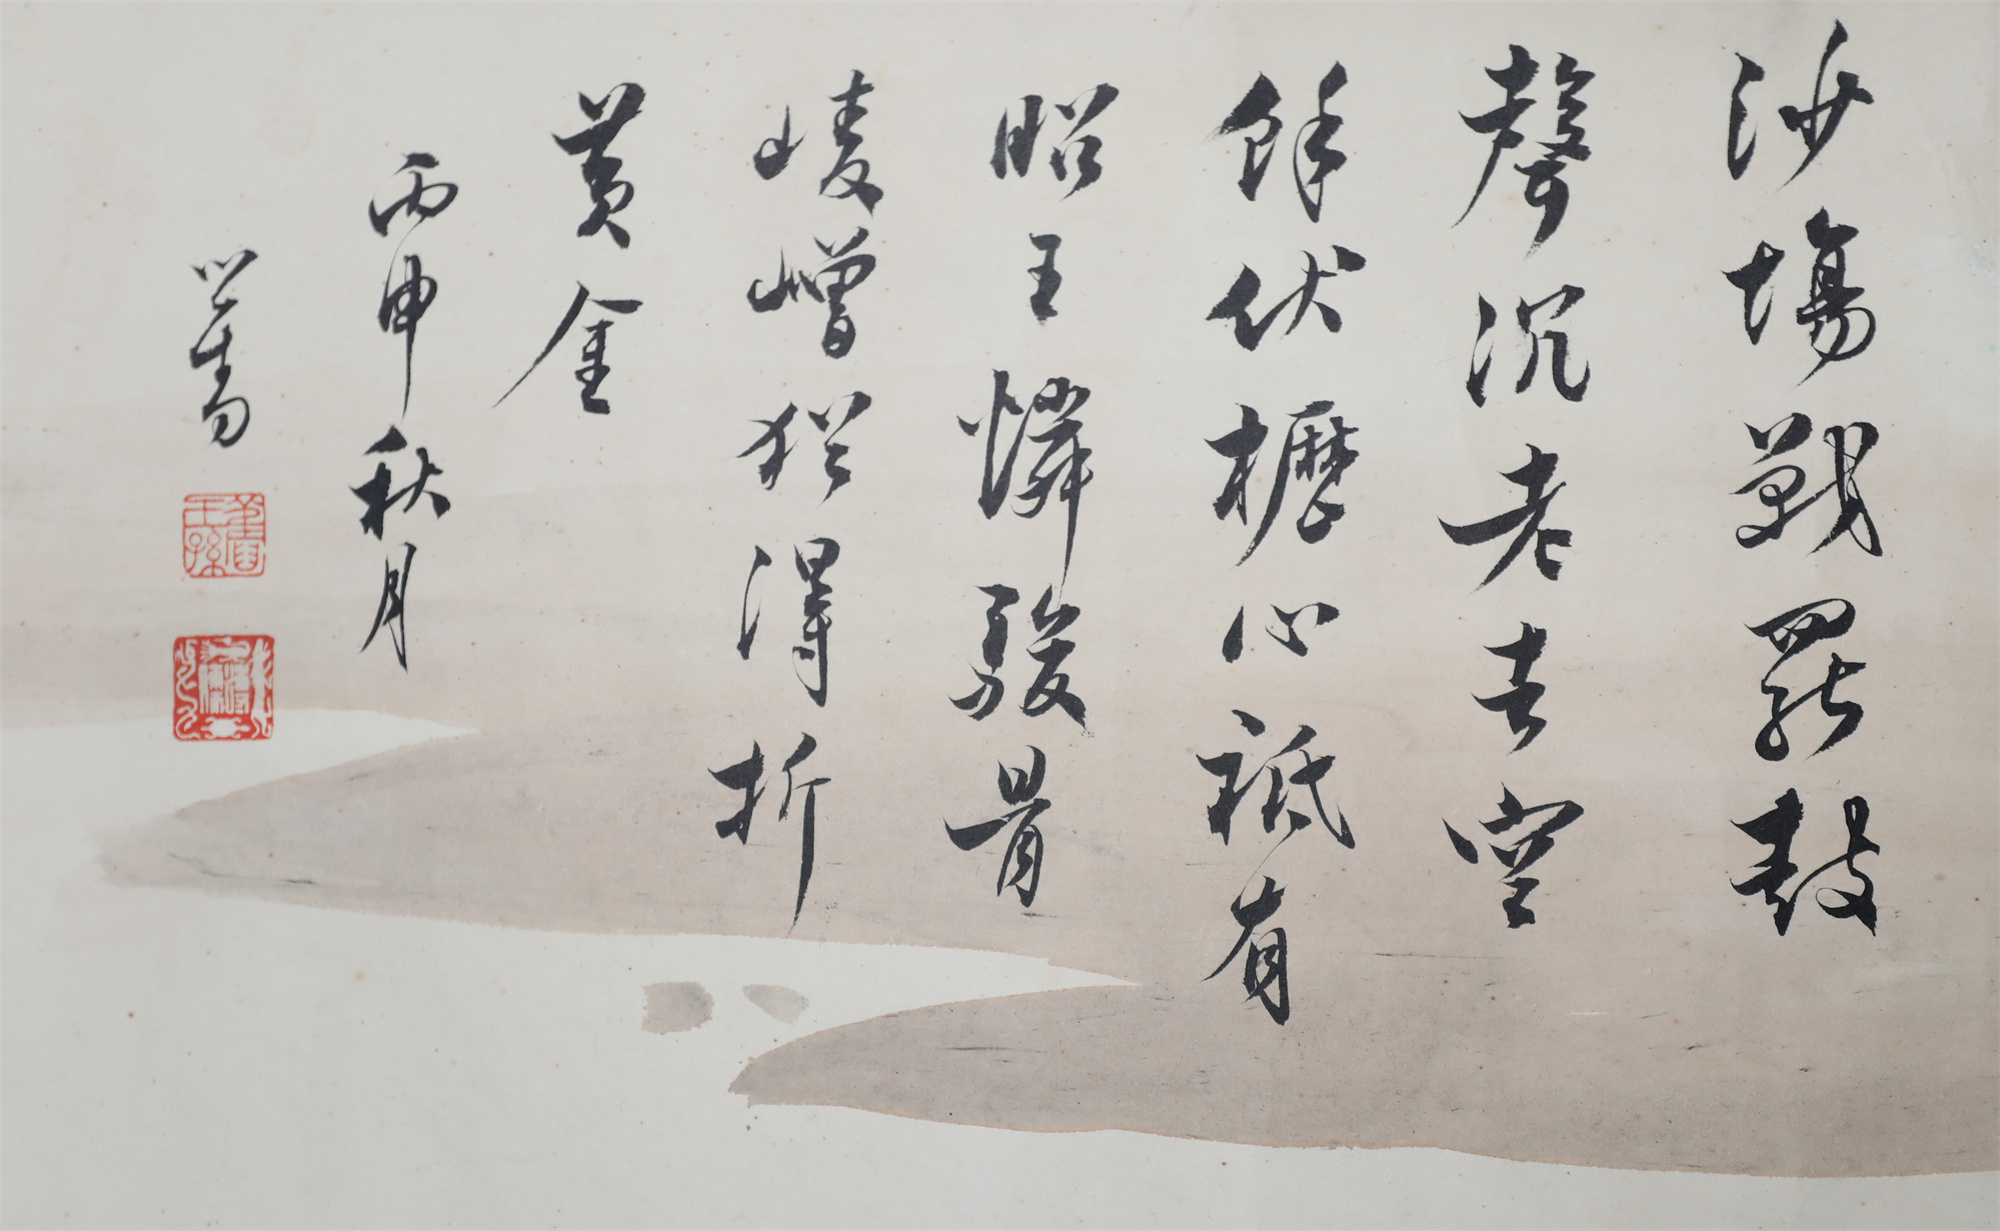 沙場戰罷鼓
聲沉老去空
餘伏櫪心祗有
昭王憐駿骨
崚嶒猶得折
黃金
丙申秋月
心畬
舊王孫